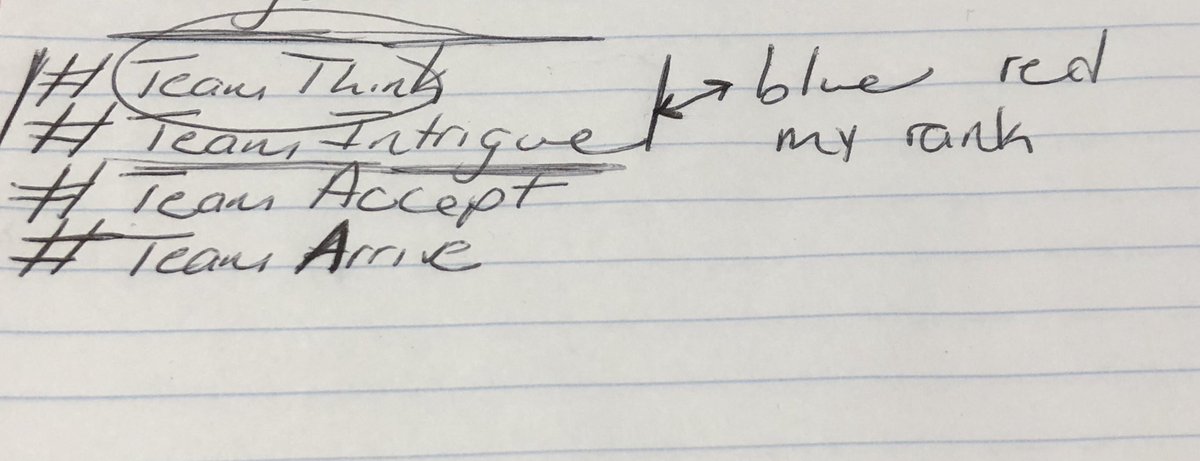 # Team Think
# Team Intrigue
# Team Accept
# Team Arrive
blue red
my rank